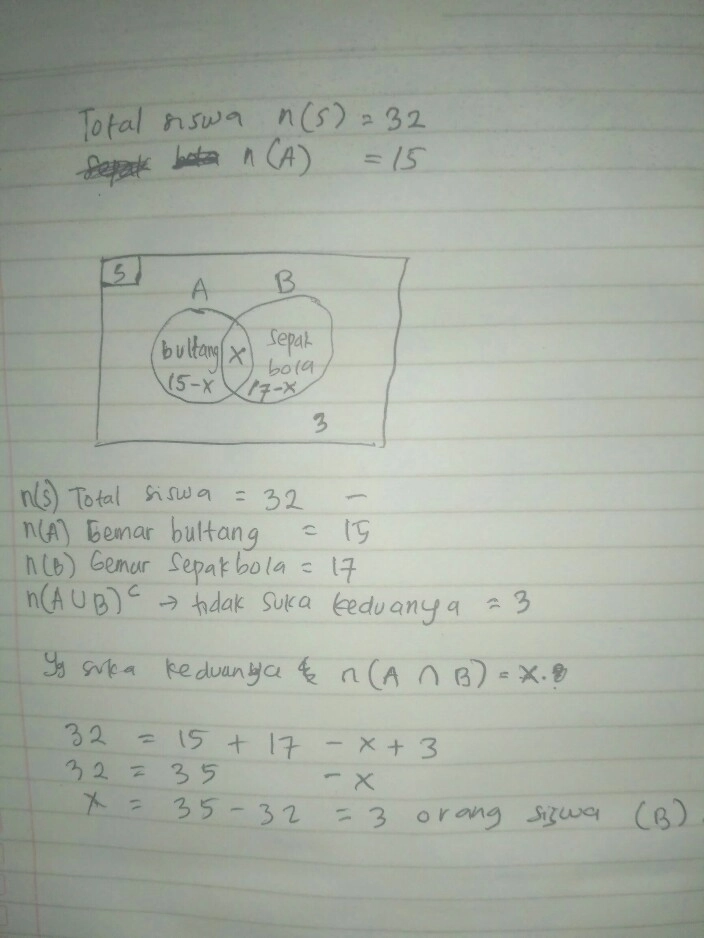 Total siswa n(S) = 32
n(A) = 15
S
A B
bultang x sepak
bola
15-x 17-x
3
n(S) Total siswa = 32 -
n(A) Gemar bultang = 15
n(B) Gemar Sepakbola = 17
n(A ∪ B)ᶜ → tidak suka keduanya = 3
Yg suka keduanya n(A ∩ B) = x.
32 = 15 + 17 - x + 3
32 = 35 - x
x = 35 - 32 = 3 orang siswa (B)